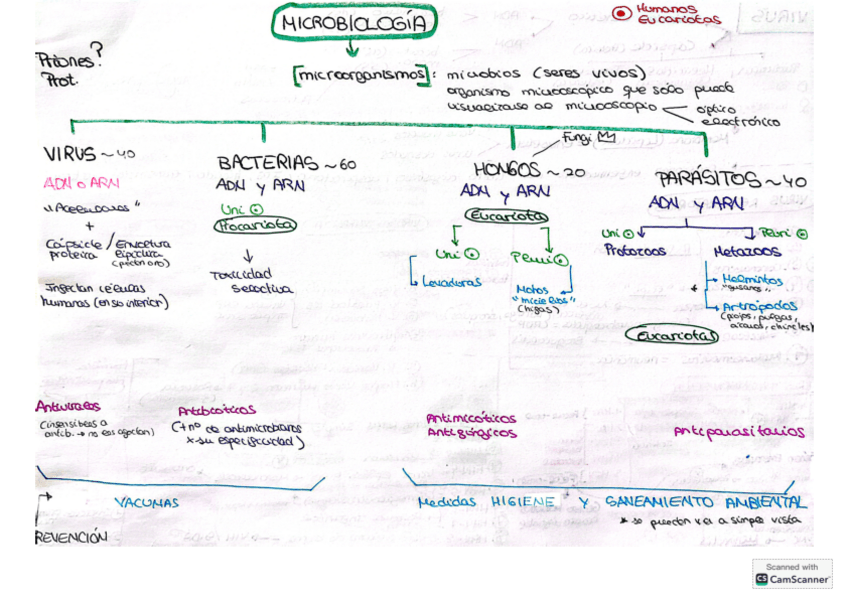 MICROBIOLOGÍA
Humanos
Eucariotas
Priones?
Prot.
[microorganismos]: microbios (seres vivos)
organismo microscópico que solo puede
visualizarse al microscopio
óptico
electrónico
VIRUS ~40
ADN o ARN
"Acelulares"
+
Cápside / Envoltura
proteica lipídica
Infectan células
humanas (en su interior)
BACTERIAS ~60
ADN y ARN
Uni
Procariota
Toxicidad
selectiva
Fungi
HONGOS ~20
ADN y ARN
Eucariota
Uni
Pluri
Levaduras
Mohos
"micelios"
(hifas)
PARÁSITOS ~40
ADN y ARN
Uni
Pluri
Protozoos
Metazoos
Helmintos
"gusanos"
*
Artrópodos
(piojos, pulgas,
ácaros, chinches)
Eucariotas
Antivirales
(insensibles a
antib. → no les afectan)
Antibióticos
(+ nº de antimicrobianos
x su especificidad)
Antimicóticos
Antifúngicos
Antiparasitarios
VACUNAS
Medidas HIGIENE Y SANEAMIENTO AMBIENTAL
* se pueden ver a simple vista
REVENCIÓN
Scanned with
CS CamScanner